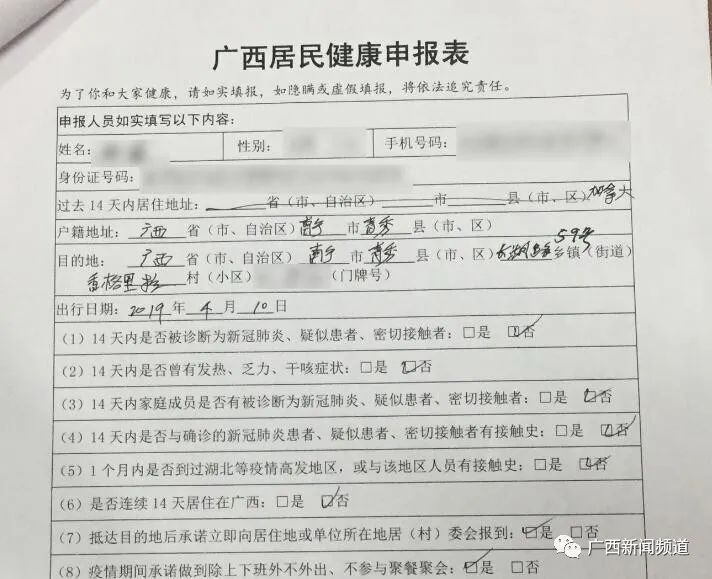 广西居民健康申报表
为了你和大家健康，请如实填报，如隐瞒或虚假填报，将依法追究责任。
申报人员如实填写以下内容：
姓名： 性别： 手机号码：
身份证号码：
过去14天内居住地址： 省（市、自治区） 市 县（市、区）加拿大
户籍地址：广西省（市、自治区）南宁市青秀县（市、区）
目的地：广西省（市、自治区）南宁市青秀县（市、区） 59号乡镇（街道）
香格里拉村（小区） （门牌号）
出行日期：2019年4月10日
（1）14天内是否被诊断为新冠肺炎、疑似患者、密切接触者：□是 □否
（2）14天内是否曾有发热、乏力、干咳症状：□是 □否
（3）14天内家庭成员是否有被诊断为新冠肺炎、疑似患者、密切接触者：□是 □否
（4）14天内是否与确诊的新冠肺炎患者、疑似患者、密切接触者有接触史：□是 □否
（5）1个月内是否到过湖北等疫情高发地区，或与该地区人员有接触史：□是 □否
（6）是否连续14天居住在广西：□是 □否
（7）抵达目的地后承诺立即向居住地或单位所在地居（村）委会报到：□是 □否
（8）疫情期间承诺做到除上下班外不外出、不参与聚餐聚会：□是 □否
广西新闻频道